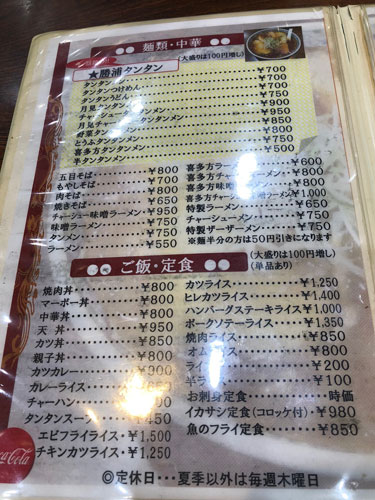 麺類・中華
(大盛りは100円増し)
★勝浦タンタン
タンタンメン
タンタンつけめん・・・¥700
タンタンうどん・・・¥700
月見タンタンメン・・・¥750
チャーシュータンタンメン・・・¥900
月見チャーシュータンタンメン・・・¥950
野菜タンタンメン・・・¥850
とうふタンタンメン・・・¥800
喜多方タンタンメン・・・¥750
半タンタンメン・・・¥500
五目そば・・・¥800
もやしそば・・・¥700
肉そば・・・¥800
焼きそば・・・¥650
チャーシュー味噌ラーメン・¥950
味噌ラーメン・・・¥750
タンメン・・・¥750
ラーメン・・・¥550
喜多方ラーメン・・・¥600
喜多方チャーシュー
喜多方味噌
喜多方味噌チャーシューメン¥1,000
特製ラーメン・・・¥650
チャーシューメン・・・¥750
特製ザーザーメン・・・¥750
※麺半分の方は50円引きになります
ご飯・定食
(大盛りは100円増し)
(単品あり)
焼肉丼・・・¥800
マーボー丼・・・¥800
中華丼・・・¥800
天 丼・・・¥950
カツ丼・・・¥850
親子丼・・・¥800
カツカレー・・・¥900
カレーライス・・・¥650
チャーハン
タンタンスープ・・・¥450
エビフライライス・¥1,500
チキンカツライス・¥1,250
カツライス・・・¥1,250
ヒレカツライス・・・¥1,400
ハンバーグステーキライス¥1,000
ポークソテーライス・・・¥1,350
焼肉ライス・・・¥850
オム・・・¥800
ライ・・・¥200
半ラ・・・¥100
お刺身定食・・・時価
イカサシ定食(コロッケ付)・¥980
魚のフライ定食・・・¥850
◎定休日・・・夏季以外は毎週木曜日
Coca-Cola